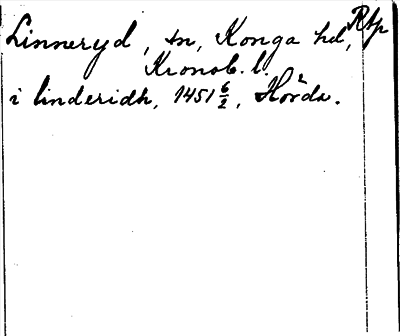 Linneryd, sn, Konga hd, Rtp
Kronob. l.
i linderidh, 1451 6/2, Hörda.